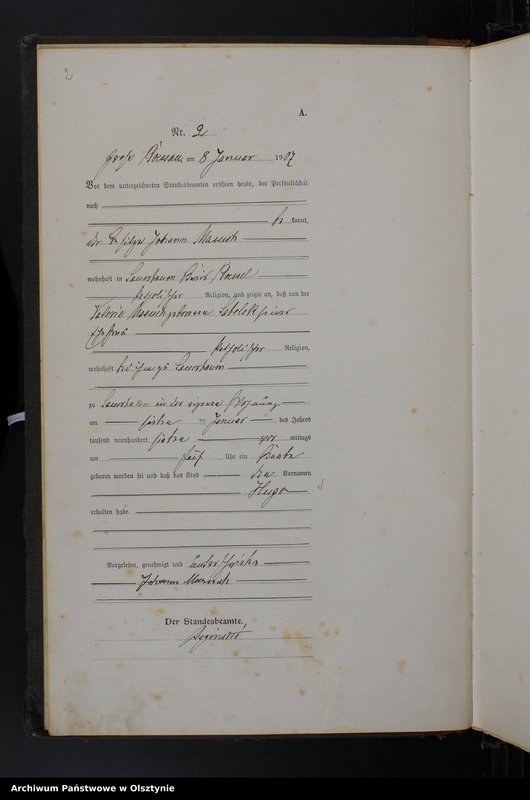 2
A.
Nr. 2
Groß Bössau am 8 Januar 1907
Vor dem unterzeichneten Standesbeamten erschien heute, der Persönlichkeit
nach
be kannt,
der Besitzer Johann Masuch
wohnhaft in
katholischer Religion, und zeigte an, daß von der
Valeria Masuch geborenen seiner
Ehefrau
katholischer Religion,
wohnhaft bei ihm zu
zu in der eigenen Wohnung
am Januar des Jahres
tausend neunhundert sieben vor mittags
um fünf Uhr ein Knabe
geboren worden sei und daß das Kind den Vornamen
Hugo
erhalten habe.
Vorgelesen, genehmigt und unterschrieben
Johann Masuch
Der Standesbeamte,
Archiwum Państwowe w Olsztynie